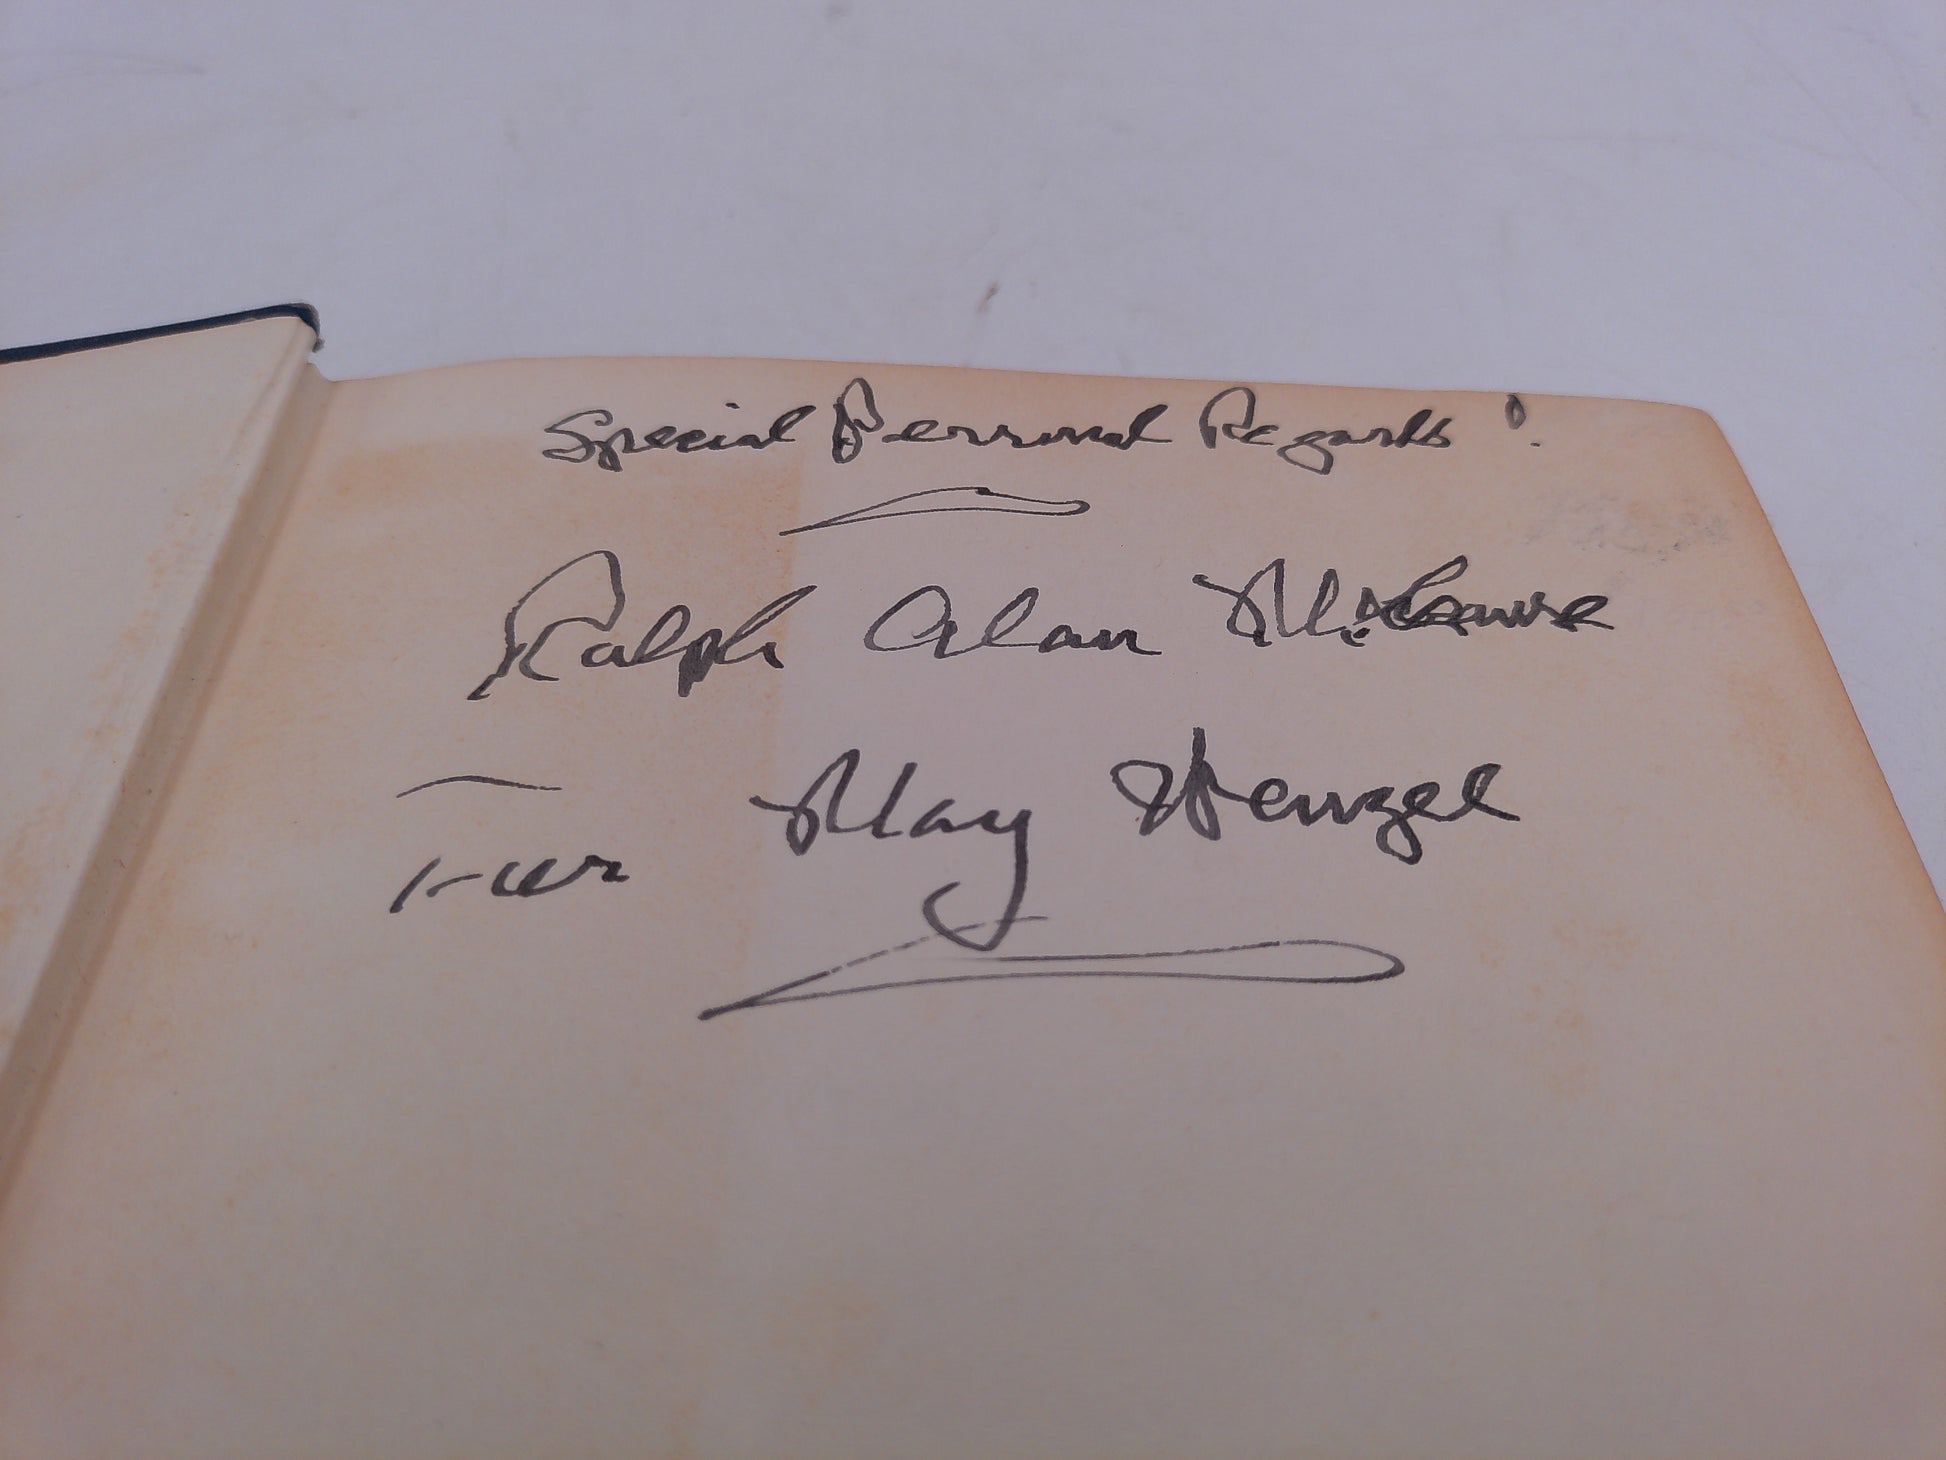 Special Personal Regards!
Ralph Alan
For May Wenzel